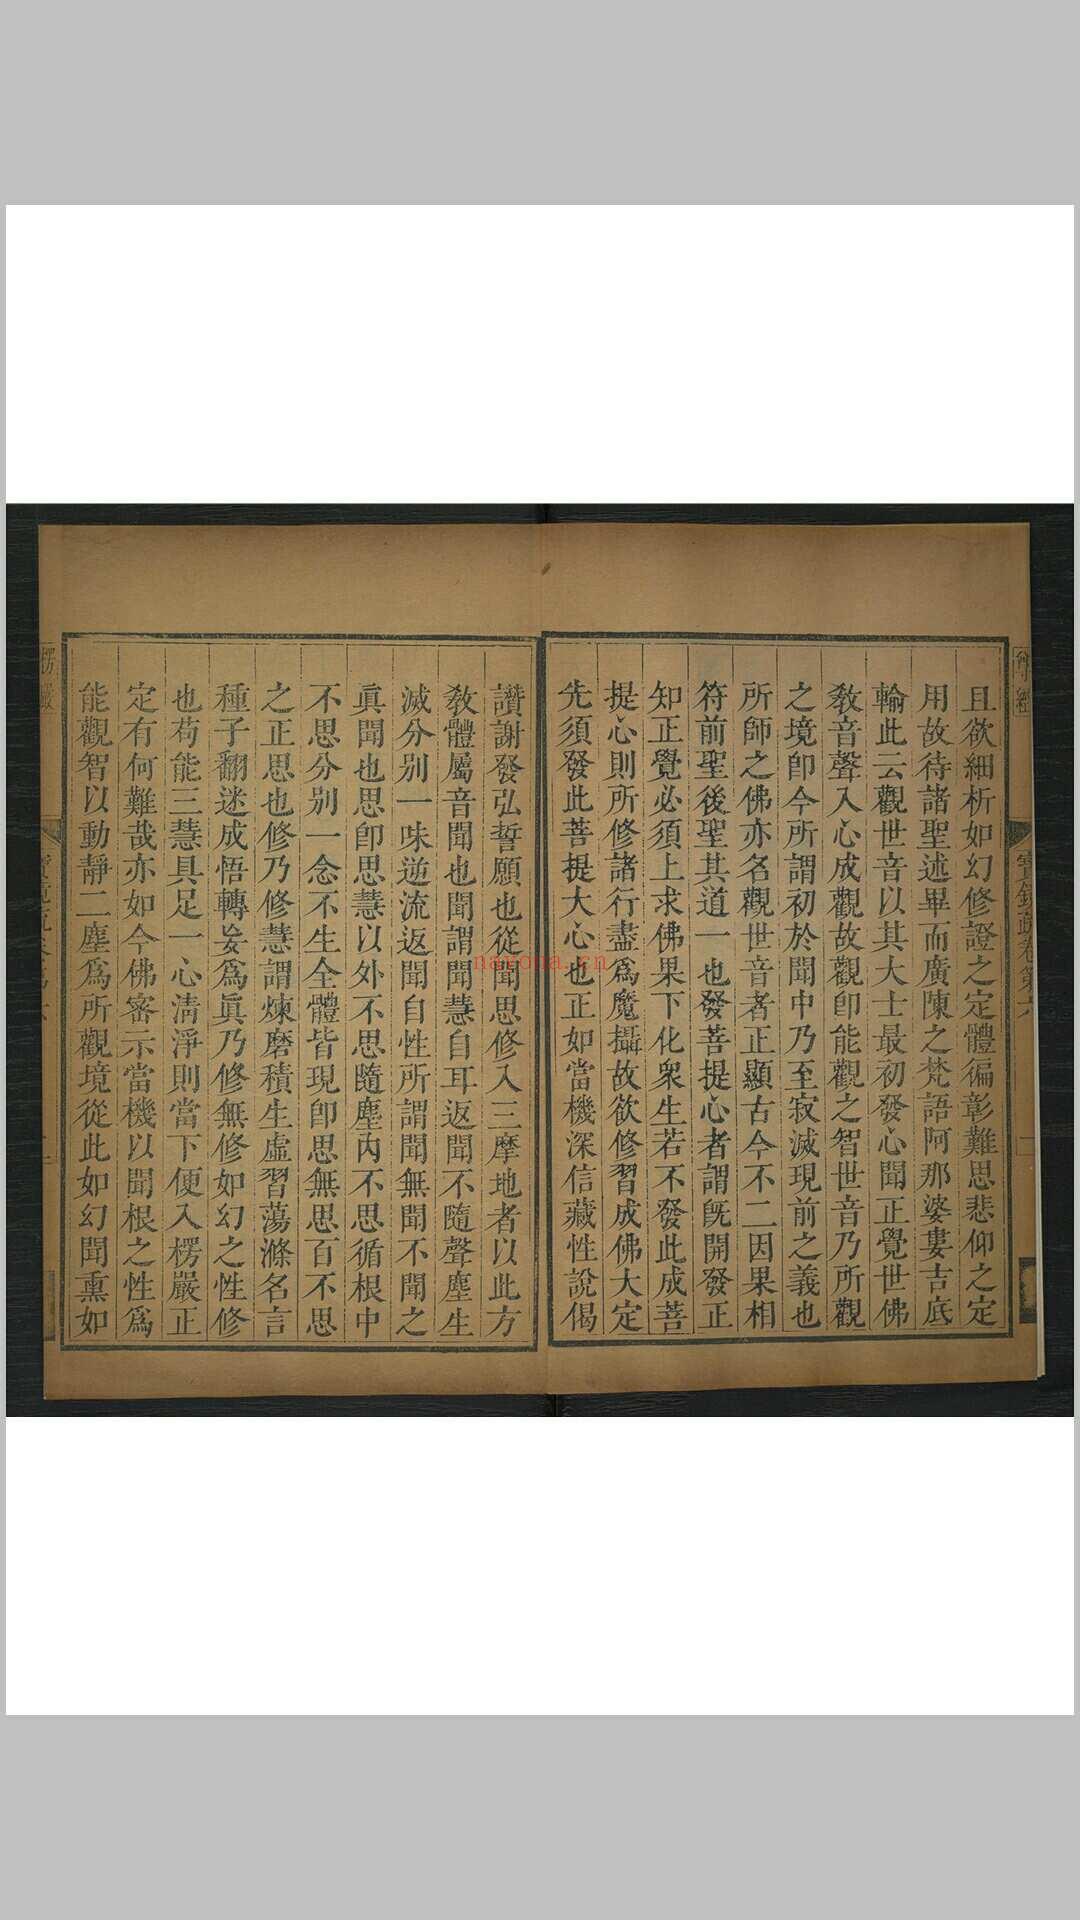 且欲細析如幻修證之定體徧彰難思悲仰之定
用故待諸聖述畢而廣陳之梵語阿那婆婁吉底
輸此云觀世音以其大士最初發心聞正覺世佛
教音聲入心成觀故觀卽能觀之智世音乃所觀
之境卽今所謂初於聞中乃至寂滅現前之義也
所師之佛亦名觀世音者正顯古今不二因果相
符前聖後聖其道一也發菩提心者謂旣開發正
知正覺必須上求佛果下化衆生若不發此成菩
提心則所修諸行盡爲魔攝故欲修習成佛大定
先須發此菩提大心也正如當機深信藏性說偈
讚謝發弘誓願也從聞思修入三摩地者以此方
教體屬音聞也聞謂聞慧自耳返聞不隨聲塵生
滅分别一味逆流返聞自性所謂聞無聞不聞之
眞聞也思卽思慧以外不思隨塵內不思循根中
不思分别一念不生全體皆現卽思無思百不思
之正思也修乃修慧謂煉磨積生虛習蕩滌名言
種子翻迷成悟轉妄爲眞乃修無修如幻之性修
也苟能三慧具足一心淸淨則當下便入楞嚴正
定有何難哉亦如今佛密示當機以聞根之性爲
能觀智以動靜二塵爲所觀境從此如幻聞熏如
寶鏡疏卷第六
楞嚴
nayona.cn